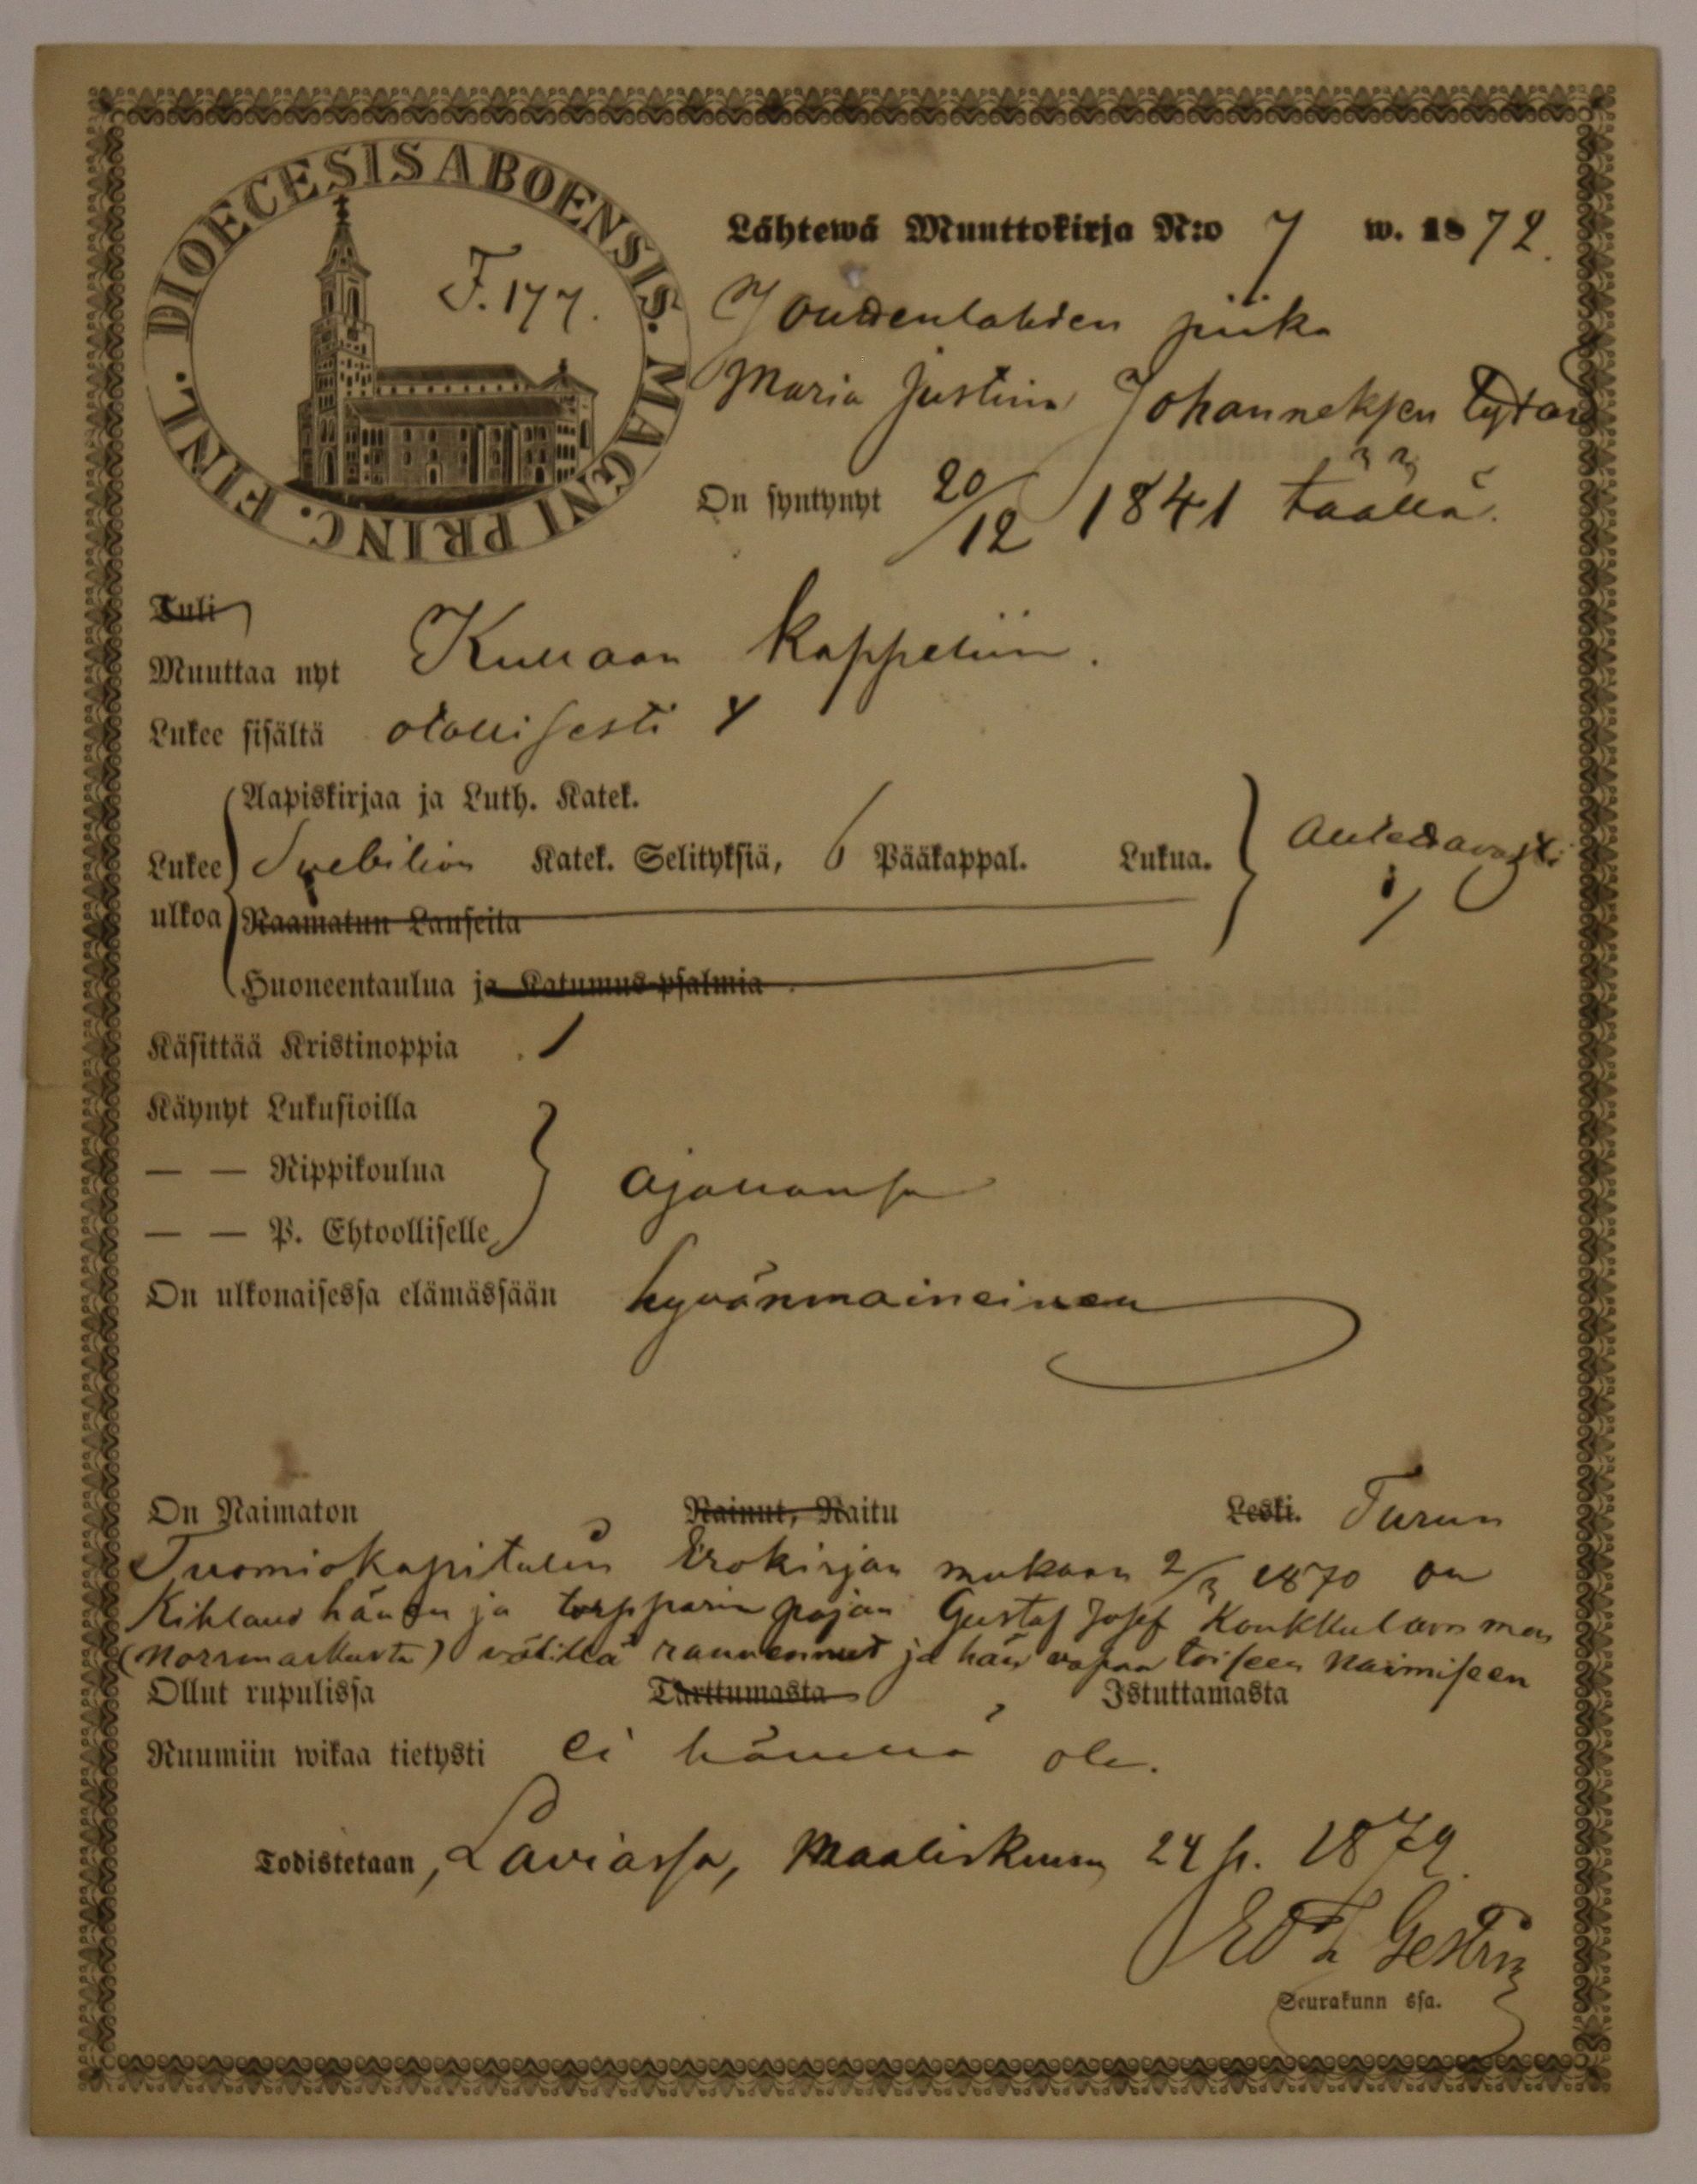 DIOECESIS ABOENSIS. MAGNI PRINC. FINL.
F. 177.
Lähtewä Muuttokirja N:o 7 w. 1872.
piika
Maria Justina Johanneksen tytär
On syntynyt 20/12 1841 täällä.
Tuli
Muuttaa nyt Kullaan kappeliin.
Lukee sisältä otollisesti
Aapiskirjaa ja Luth. Katek.
Lukee Svebilion Katek. Selityksiä, 6 Pääkappal. Lukua. auttavasti
ulkoa Raamatun Lauseita
Huoneentaulua ja Katumus-psalmia
Käsittää Kristinoppia
Käynyt Lukusioilla
— — Rippikoulua ajallansa
— — P. Ehtoolliselle
On ulkonaisessa elämässään hyvänmaineinen
On Naimaton Nainut, Naitu Leski. Turun
Tuomiokapitulin Erokirjan mukaan 2/3 1870 on
Kihlaus hänen ja torpparin pojan Gustaf Josef
(Norrmarkusta) välillä rauvennut ja hän vapaa toiseen Naimiseen
Ollut rupulissa Tarttumasta Istuttamasta
Ruumiin wikaa tietysti ei hänellä ole.
Todistetaan, Laviassa, Maaliskuun 24 p. 1872.
Gestrin
Seurakunn ssa.